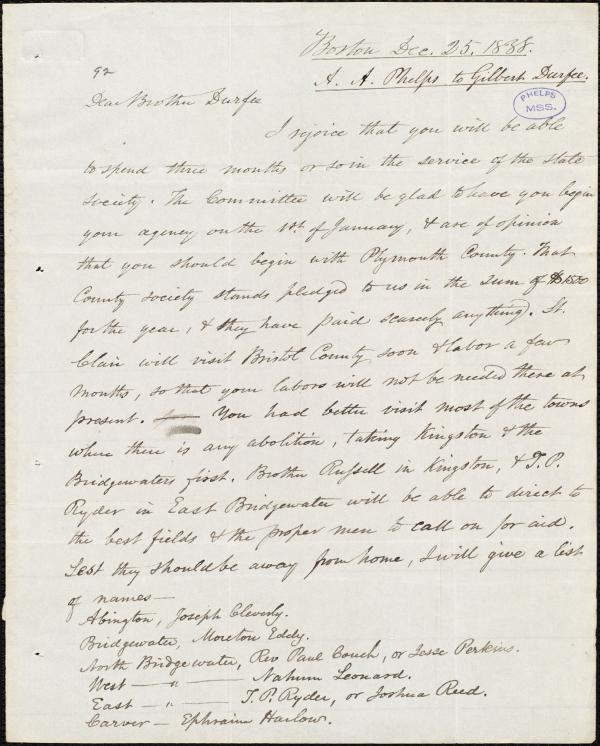 Boston Dec. 25. 1838.
A. A. Phelps to Gilbert Durfee.
92
PHELPS
MSS.
Dear Brother Durfee
I rejoice that you will be able
to spend three months or so in the service of the State
Society. The Committee will be glad to have you begin
your agency on the 1st. of January, & are of opinion
that you should begin with Plymouth County. That
County Society stands pledged to us in the sum of
for the year, & they have paid scarcely anything. St.
Clair will visit Bristol County soon & labor a few
months, so that your labors will not be needed there at
present. You had better visit most of the towns
where there is any abolition, taking Kingston & the
Bridgewaters first. Brother Russell in Kingston, & T. P.
Ryder in East Bridgewater will be able to direct to
the best fields & the proper men to call on for aid.
Lest they should be away from home, I will give a list
of names—
Abington, Joseph Cleverly.
Bridgewater, Moreton Eddy.
North Bridgewater, Rev Paul Couch, or Jesse Perkins.
West — " — Nahum Leonard.
East — " — T. P. Ryder, or Joshua Reed.
Carver — Ephraim Harlow.